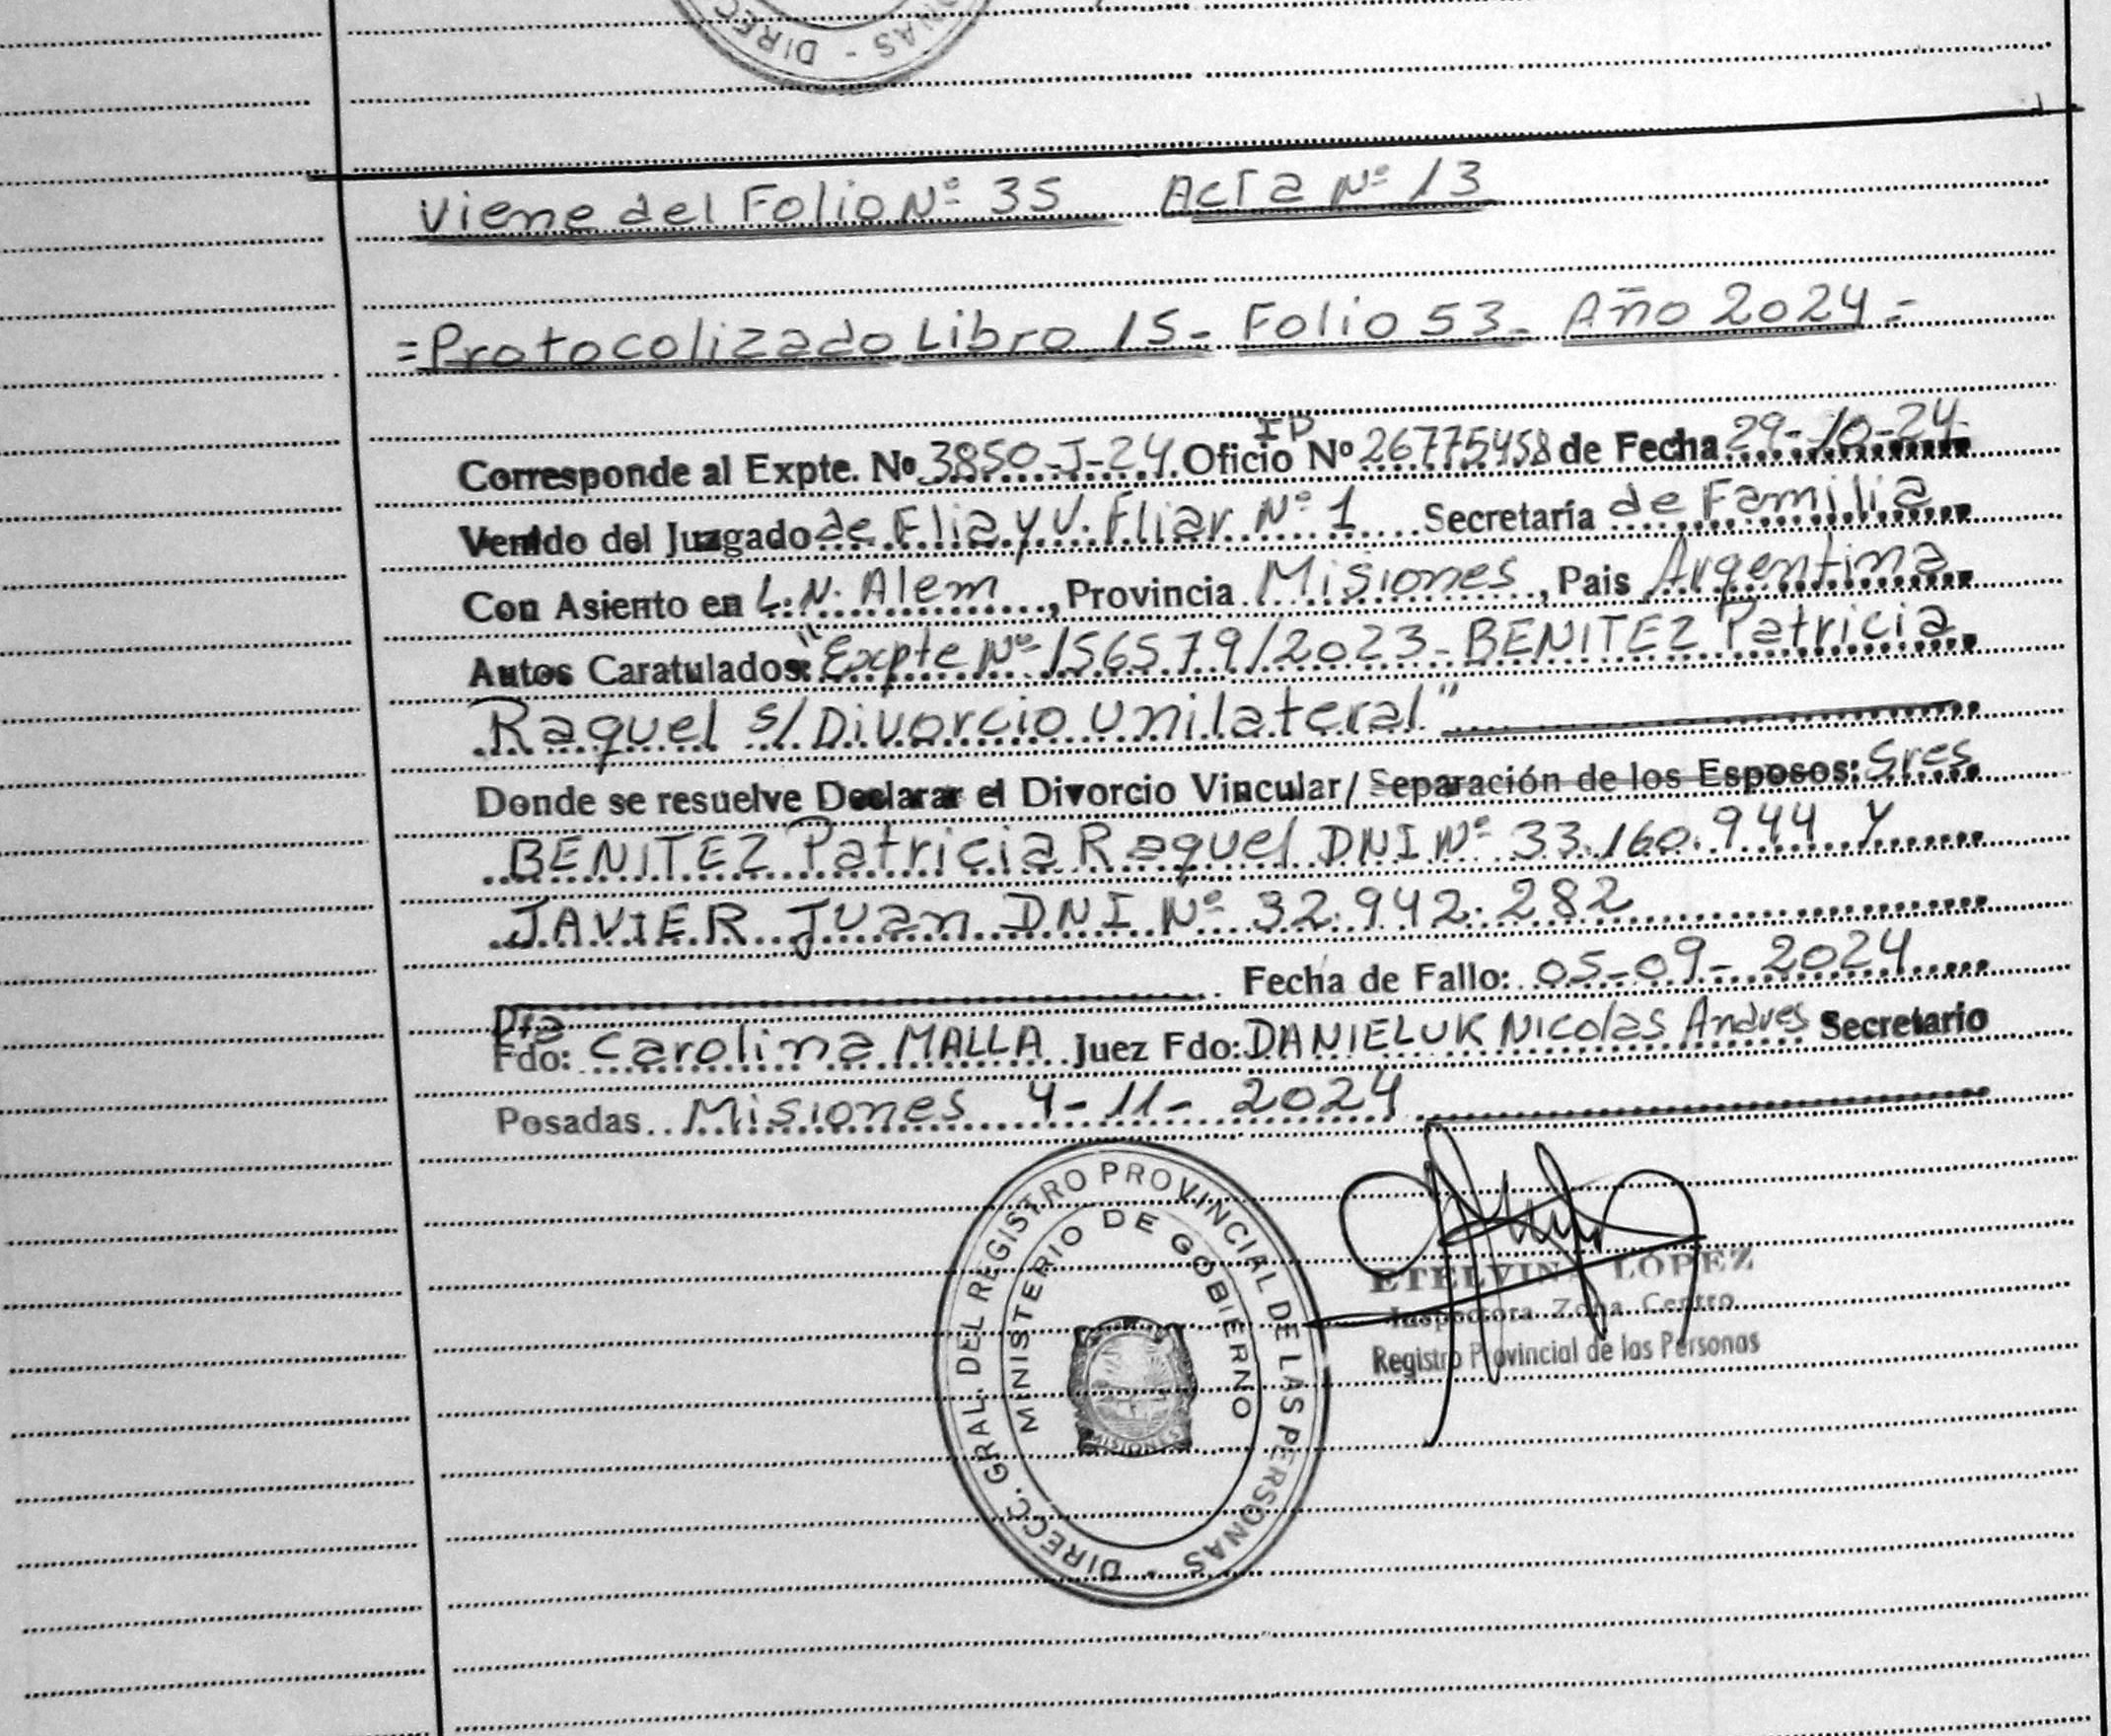 DIRECC NAS -
Viene del Folio Nº 35 Acta Nº 13
=Protocolizado Libro 15- Folio 53- Año 2024=
ID
Corresponde al Expte. Nº 3850-J-24 Oficio Nº 26775458 de Fecha 29-10-24
Venido del Juzgado de Flia y V. Fliar Nº 1 Secretaría de Familia
Con Asiento en L.N. Alem, Provincia Misiones, Pais Argentina
Autos Caratulados: "Expte Nº 156579/2023- BENITEZ Patricia
Raquel s/Divorcio unilateral"
Donde se resuelve Declarar el Divorcio Vincular/ Separación de los Esposos: Sres
BENITEZ Patricia Raquel DNI Nº 33.160.944 y
JAVIER Juan DNI Nº 32.942.282
Fecha de Fallo: 05-09-2024
Dta
Fdo: Carolina MALLA Juez Fdo: DANIELUK Nicolas Andres Secretario
Posadas Misiones 4-11-2024
DIRECC. GRAL. DEL REGISTRO PROVINCIAL DE LAS PERSONAS -
MINISTERIO DE GOBIERNO
MISIONES
ETELVINA LÓPEZ
Inspectora Zona Centro
Registro Provincial de las Personas